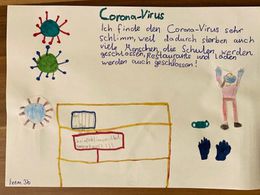 Corona-Virus
Ich finde den Corona-Virus sehr
schlimm, weil dadurch sterben auch
viele Menschen, die Schulen werden
geschlossen, Restaurants und läden
werden auch geschlossen!